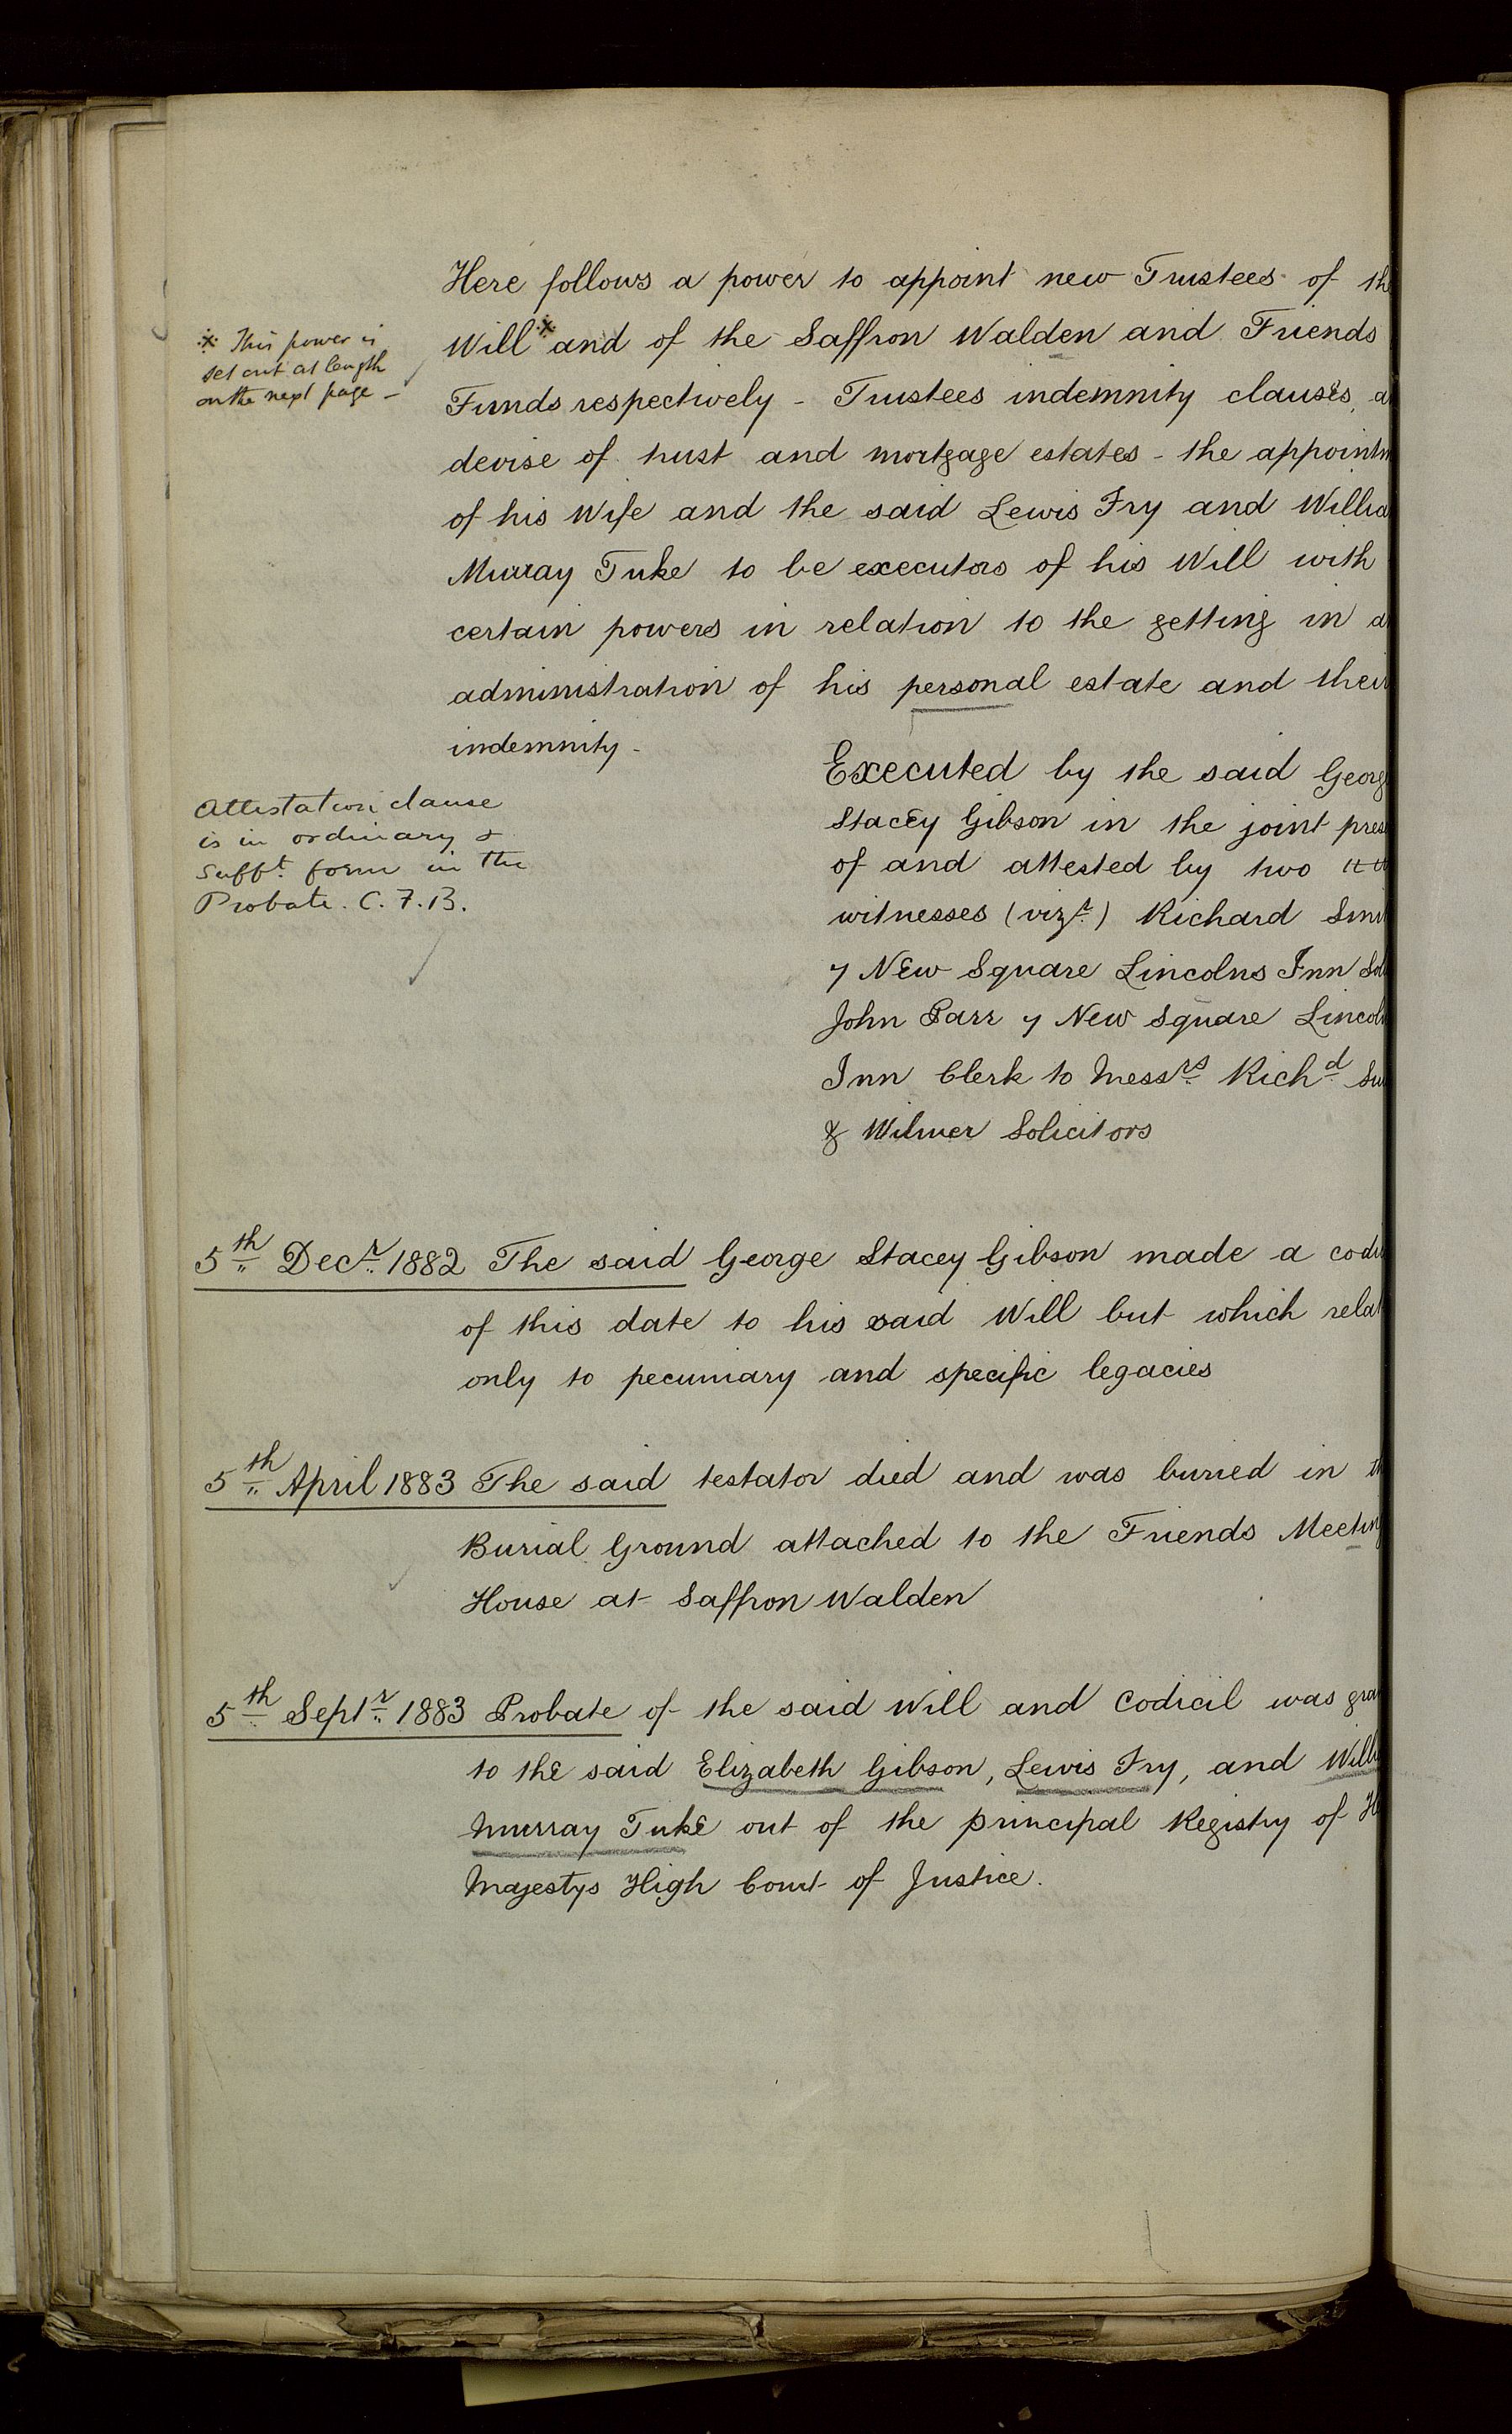 Here follows a power to appoint new Trustees of th
Will※ and of the Saffron Walden and Friends
Funds respectively - Trustees indemnity clauses, a
devise of trust and mortgage estates - the appointm
of his Wife and the said Lewis Fry and Willia
Murray Tuke to be executors of his Will with
certain powers in relation to the getting in a
administration of his personal estate and their
indemnity -
※ This power is
set out at length
on the next page -
Executed by the said Georg
Stacey Gibson in the joint pres
of and attested by two
witnesses (vizt.) Richard Smi
7 New Square Lincolns Inn Sol
John Parr 7 New Square Lincoln
Inn Clerk to Messrs. Richd.
& Wilmer Solicitors
Attestation clause
is in ordinary &
sufft. form in the
Probate. C.F.B.
5th Decr. 1882 The said George Stacey Gibson made a codi
of this date to his said Will but which relat
only to pecuniary and specific legacies
5th April 1883 The said testator died and was buried in th
Burial Ground attached to the Friends Meeting
House at Saffron Walden
5th Septr. 1883 Probate of the said Will and Codicil was gra
to the said Elizabeth Gibson, Lewis Fry, and Willi
Murray Tuke out of the principal Registry of H
Majestys High Court of Justice.